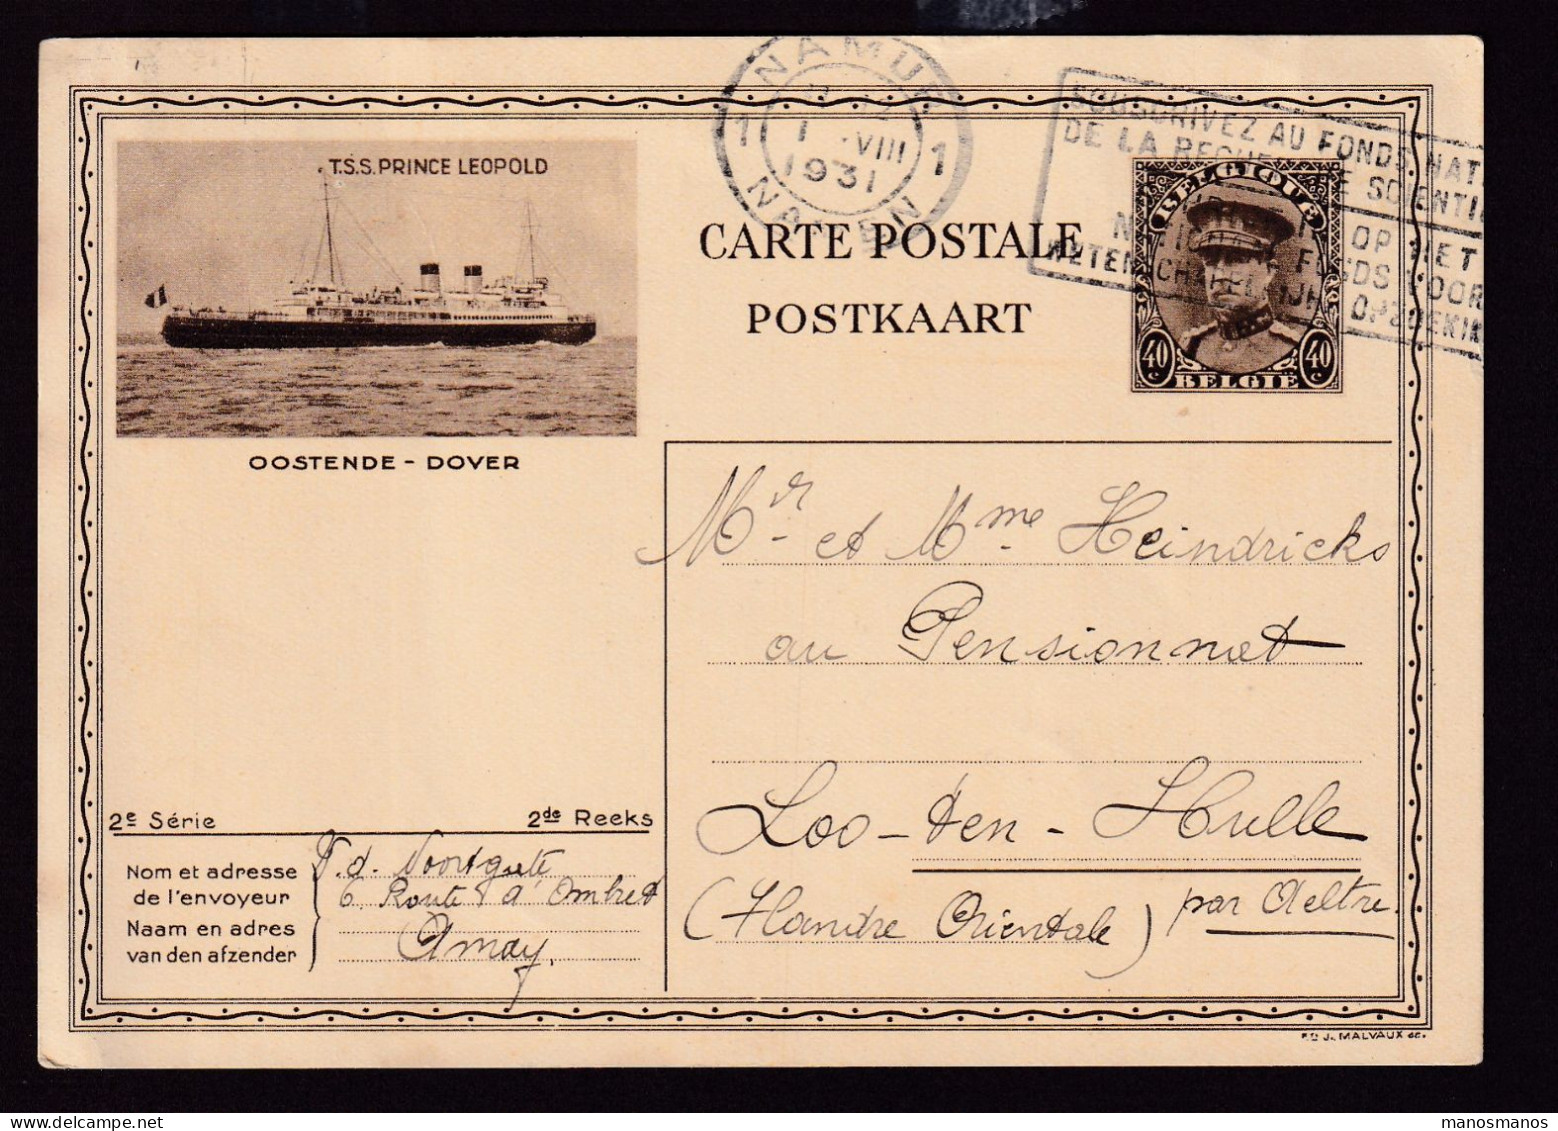 NAMUR
1 1
11-12
1 .VIII
1931
NAMEN
SOUSCRIVEZ AU FONDS NATI
DE LA RECHE E SCIENTIF
OP HET
FONDS VOOR
WETENSCHAPPELIJK OPZOEKIN
T.S.S. PRINCE LEOPOLD
OOSTENDE - DOVER
CARTE POSTALE
POSTKAART
BELGIQUE
40 c 40 c
BELGIË
Mr et Mme Heindricks
au Pensionnat
Loo-ten-Hulle
(Flandre Orientale) par Aeltre.
2e Série 2de Reeks
Nom et adresse
de l'envoyeur
Naam en adres
van den afzender
V.d. Noortgate
6 Route d'Ombret
Amay.
ED J. MALVAUX
manosmanos